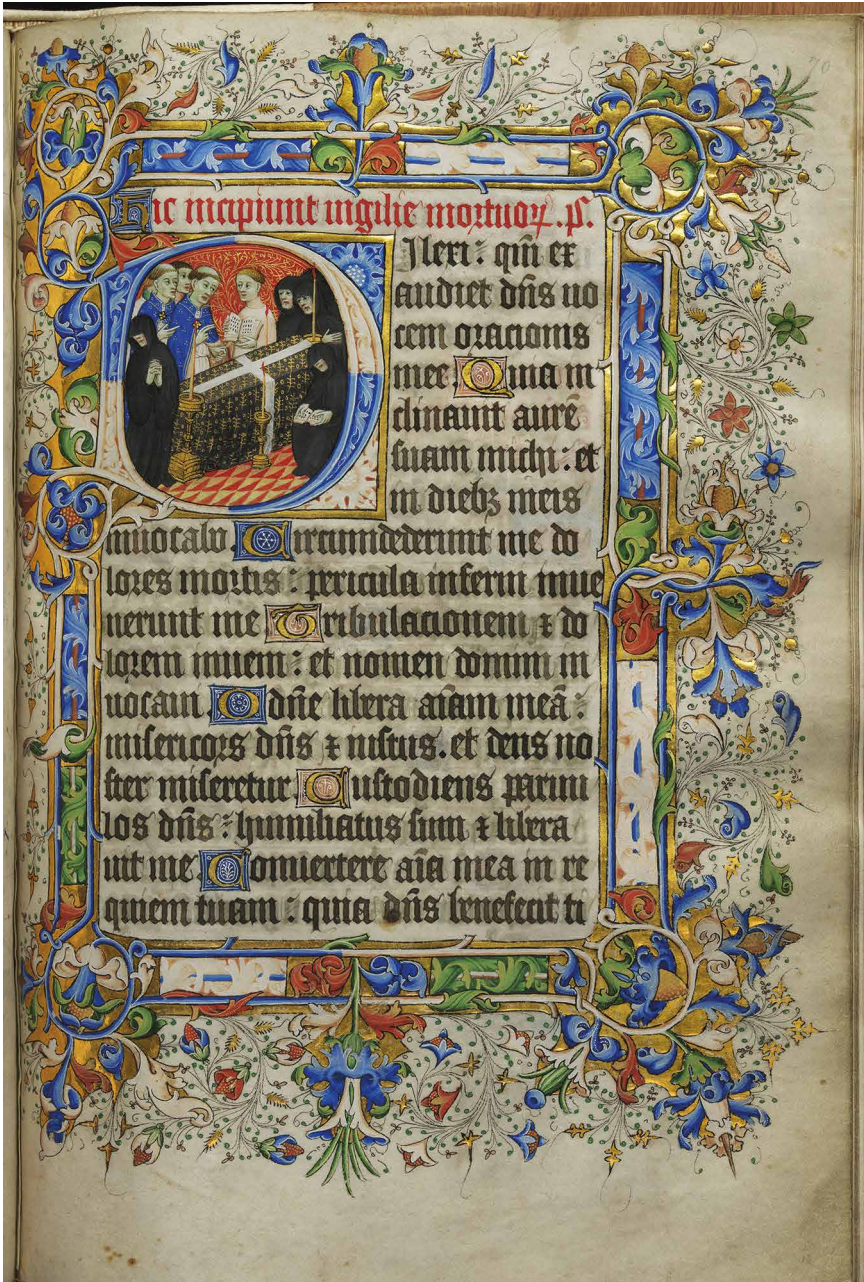 Hic incipiunt vigilie mortuoꝝ. ps̄.
Dilexi : qm̄ ex
audiet dn̄s uo
cem oracionis
mee. Quia in
clinauit aurē
suam michi : et
in diebꝫ meis
inuocabo Circumdederunt me do
lores mortis : pericula inferni inue
nerunt me Tribulacionem ⁊ do
lorem inueni : et nomen domini in
uocaui O dn̄e libera aīam meā :
misericors dn̄s ⁊ iustus. et deus no
ster miseretur Custodiens paruu
los dn̄s : humiliatus sum ⁊ libera
uit me Conuertere aīa mea in re
quiem tuam : quia dn̄s benefecit ti